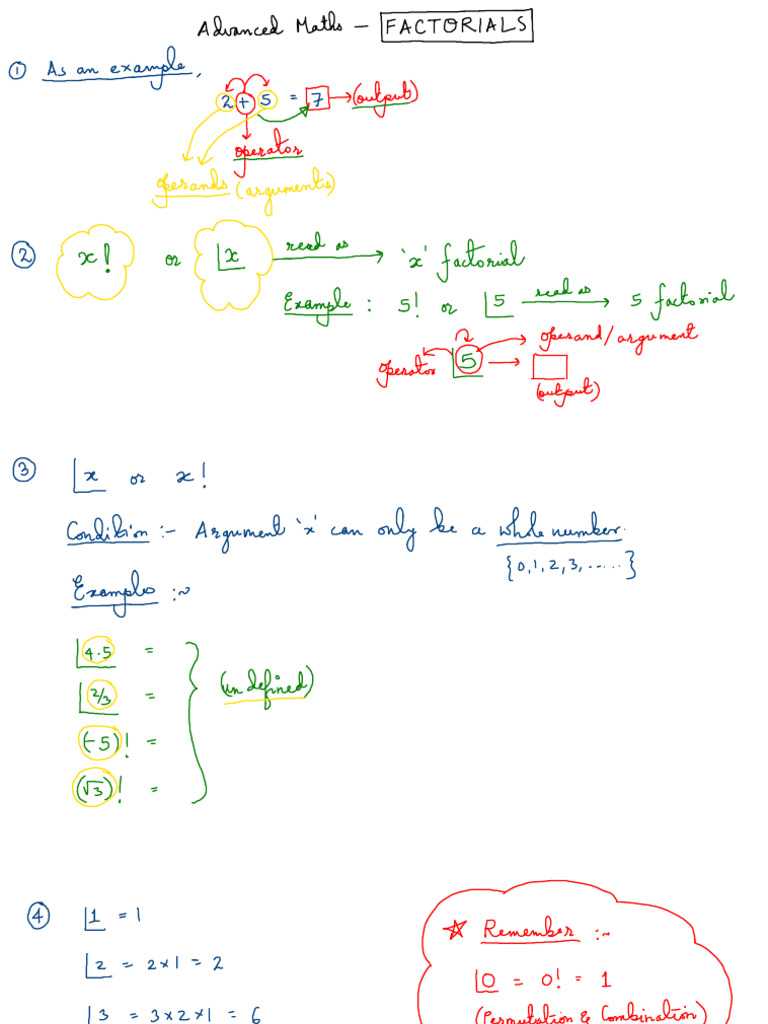 Advanced Maths – FACTORIALS
① As an example,
2 + 5 = 7 → (output)
operator
operands (arguments)
② x! or |x read as → 'x' factorial
Example : 5! or |5 read as → 5 factorial
operator |5 → operand/argument
→ (output)
③ |x or x!
Condition :- Argument 'x' can only be a whole number.
{0,1,2,3,.....}
Examples :~
|4.5 =
|2/3 =
(-5)! =
(√3)! =
(undefined)
④ |1 = 1
|2 = 2×1 = 2
|3 = 3×2×1 = 6
☆ Remember :~
|0 = 0! = 1
(Permutation & Combination)